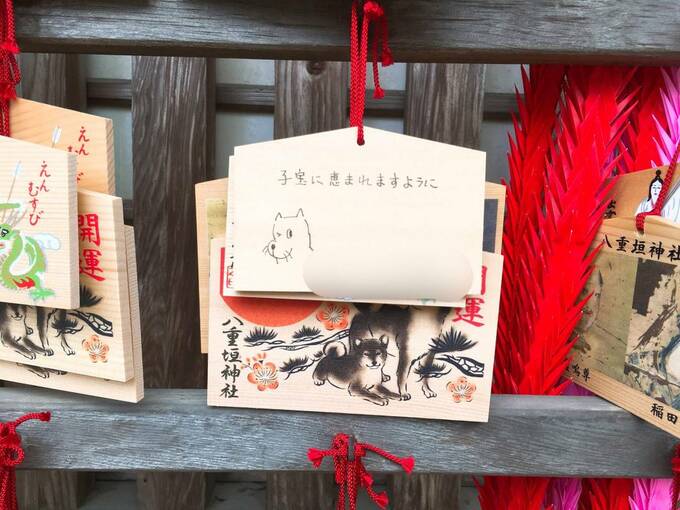 えん
むすび
えん
むすび
開運
子宝に恵まれますように
開運
八重垣神社
八重垣神社
稲田